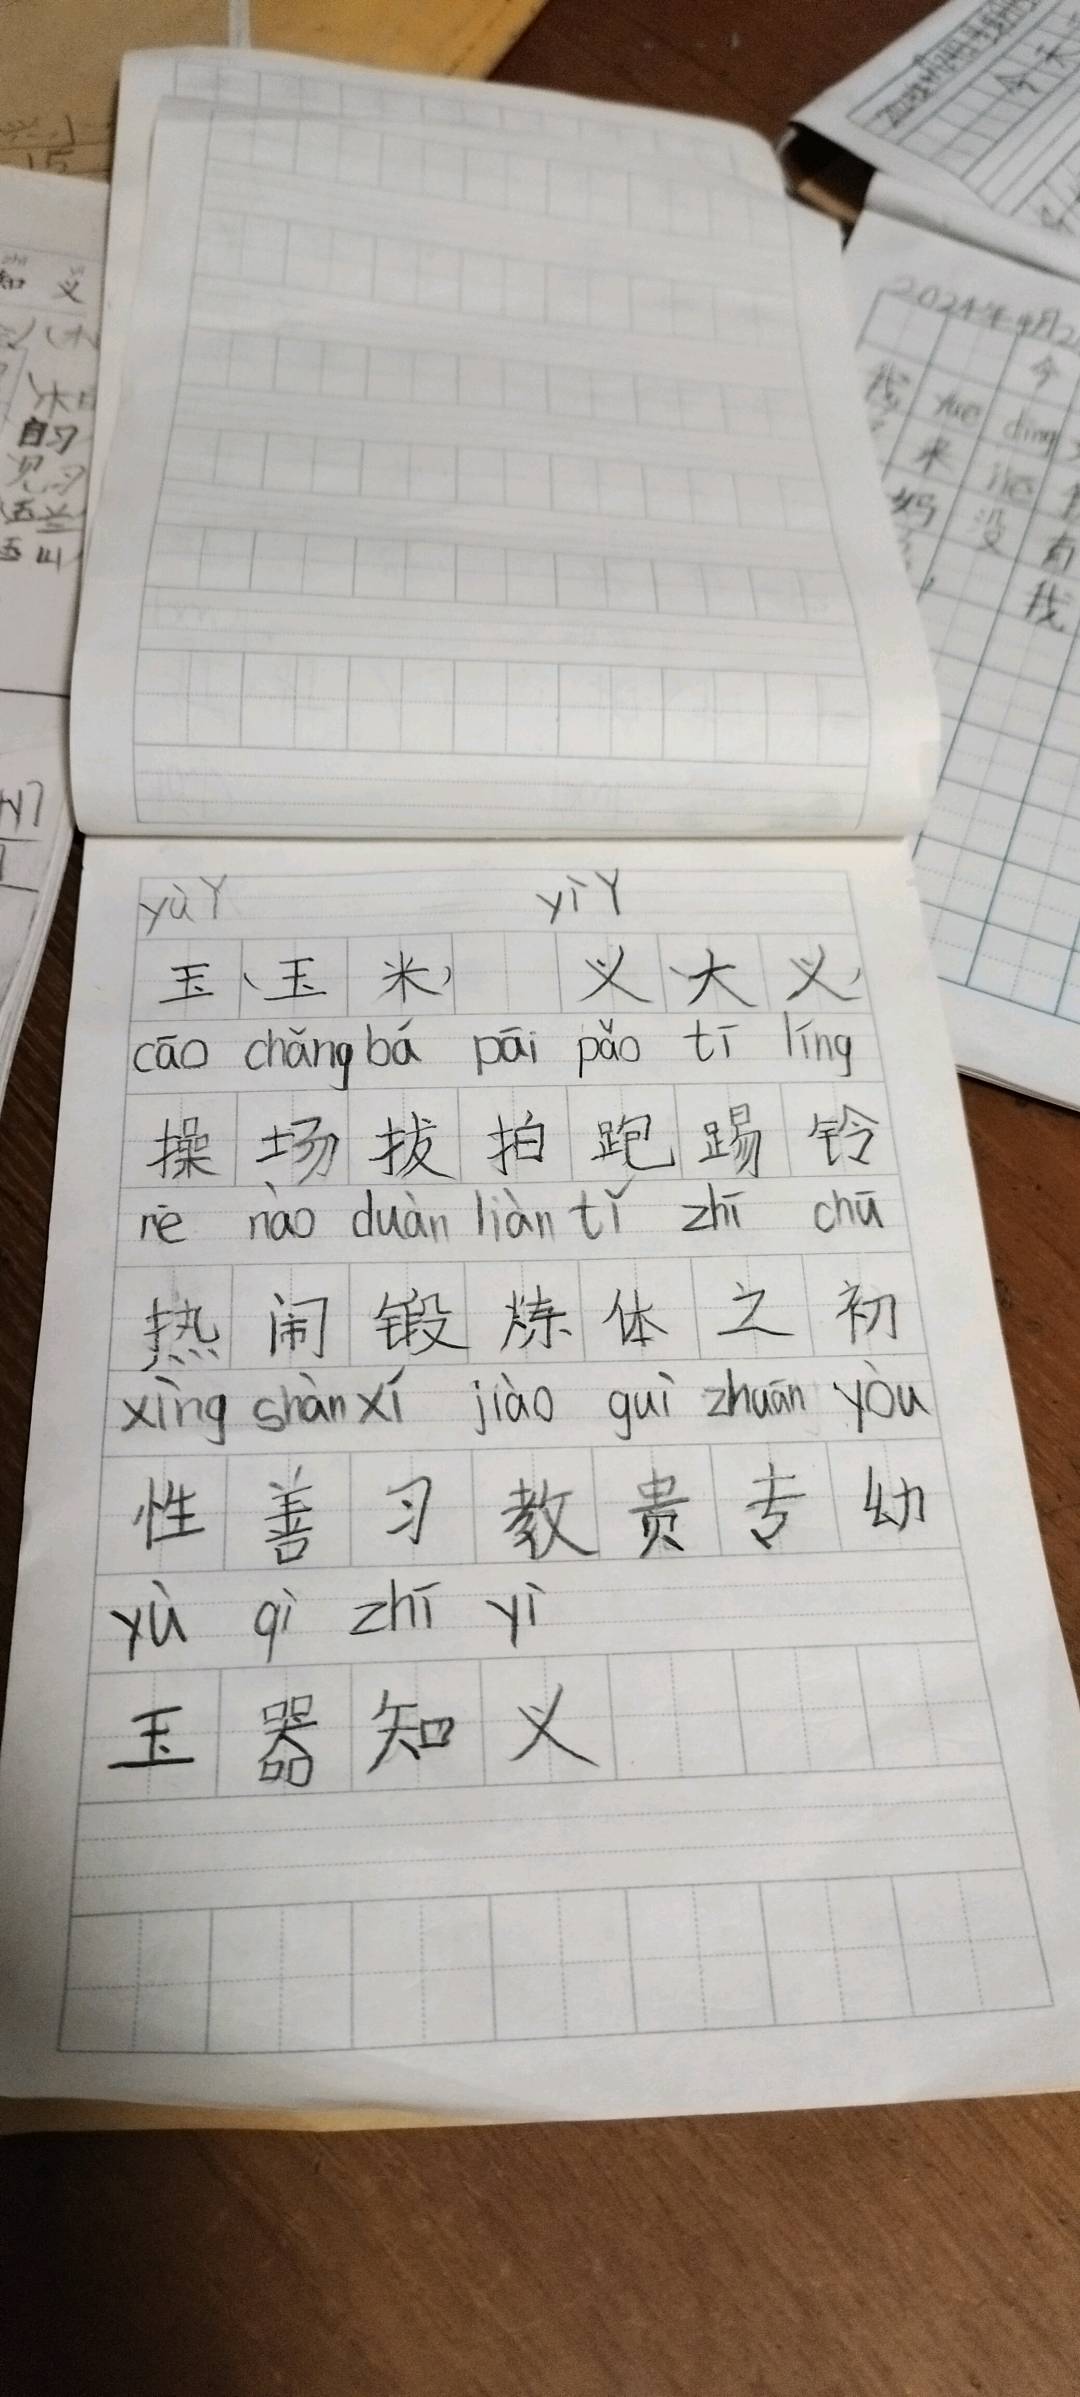 知 义
自习
见习
2024年4月2
今
我 yue ding
来 jie
妈 没 有
我
yù Y yì Y
玉(玉米) 义(大义)
cāo chǎng bá pāi pǎo tī líng
操 场 拔 拍 跑 踢 铃
rè nào duàn liàn tǐ zhī chū
热 闹 锻 炼 体 之 初
xìng shàn xí jiào guì zhuān yòu
性 善 习 教 贵 专 幼
yù qì zhī yì
玉 器 知 义